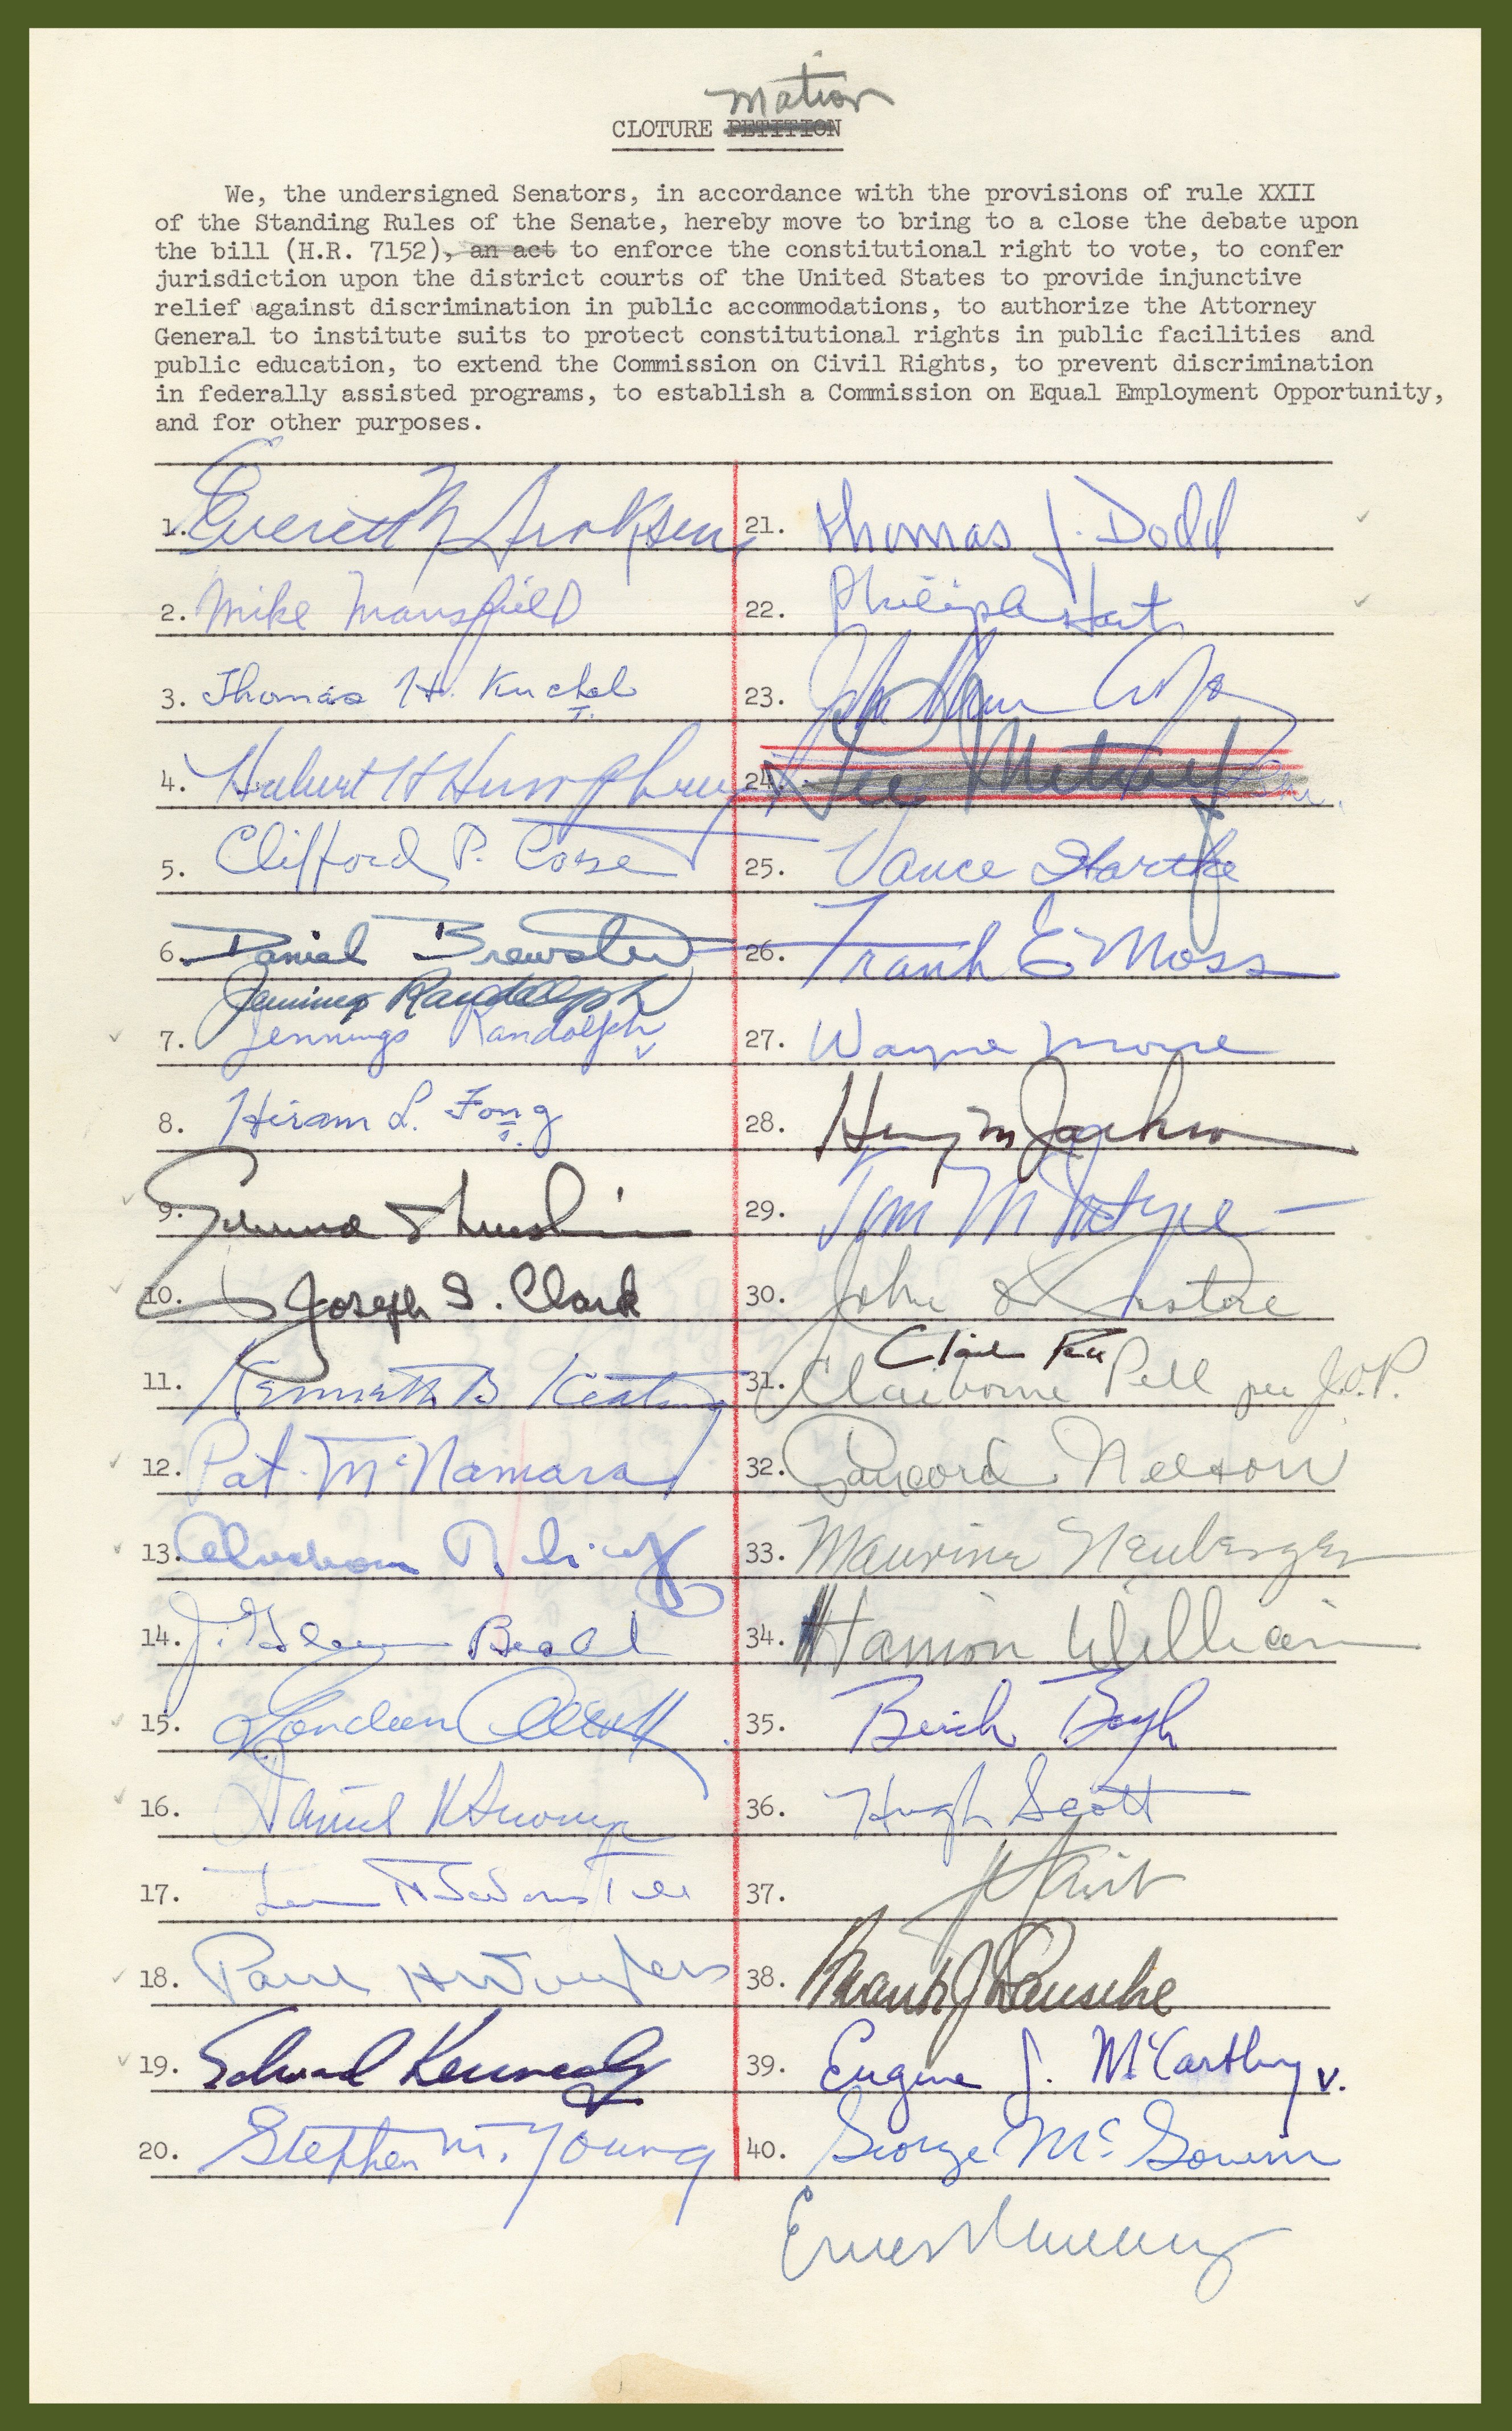 motion
CLOTURE PETITION
We, the undersigned Senators, in accordance with the provisions of rule XXII
of the Standing Rules of the Senate, hereby move to bring to a close the debate upon
the bill (H.R. 7152), an act to enforce the constitutional right to vote, to confer
jurisdiction upon the district courts of the United States to provide injunctive
relief against discrimination in public accommodations, to authorize the Attorney
General to institute suits to protect constitutional rights in public facilities and
public education, to extend the Commission on Civil Rights, to prevent discrimination
in federally assisted programs, to establish a Commission on Equal Employment Opportunity,
and for other purposes.
1. Everett M Dirksen
2. Mike Mansfield
3. Thomas H. Kuchel
4. Hubert H Humphrey
5. Clifford P. Case
6. Daniel Brewster
Jennings Randolph
7. Jennings Randolph
8. Hiram L. Fong
9.
10. Joseph S. Clark
11. Kenneth B Keating
12. Pat McNamara
13. Abraham Ribicoff
14. J. Glenn Beall
15. Gordon Allott
16. Daniel K Inouye
17.
18. Paul H Douglas
19. Edward Kennedy
20. Stephen M. Young
21. Thomas J. Dodd
22. Philip A Hart
23. John Sherman Cooper
24. Lee Metcalf
25. Vance Hartke
26. Frank E Moss
27. Wayne Morse
28. Henry M Jackson
29. Tom McIntyre
30. John O Pastore
31. Claiborne Pell per J.O.P.
32. Gaylord Nelson
33. Maurine Neuberger
34. Harrison Williams
35. Birch Bayh
36. Hugh Scott
37.
38. Frank J Lausche
39. Eugene J. McCarthy v.
40. George McGovern
Ernest Gruening